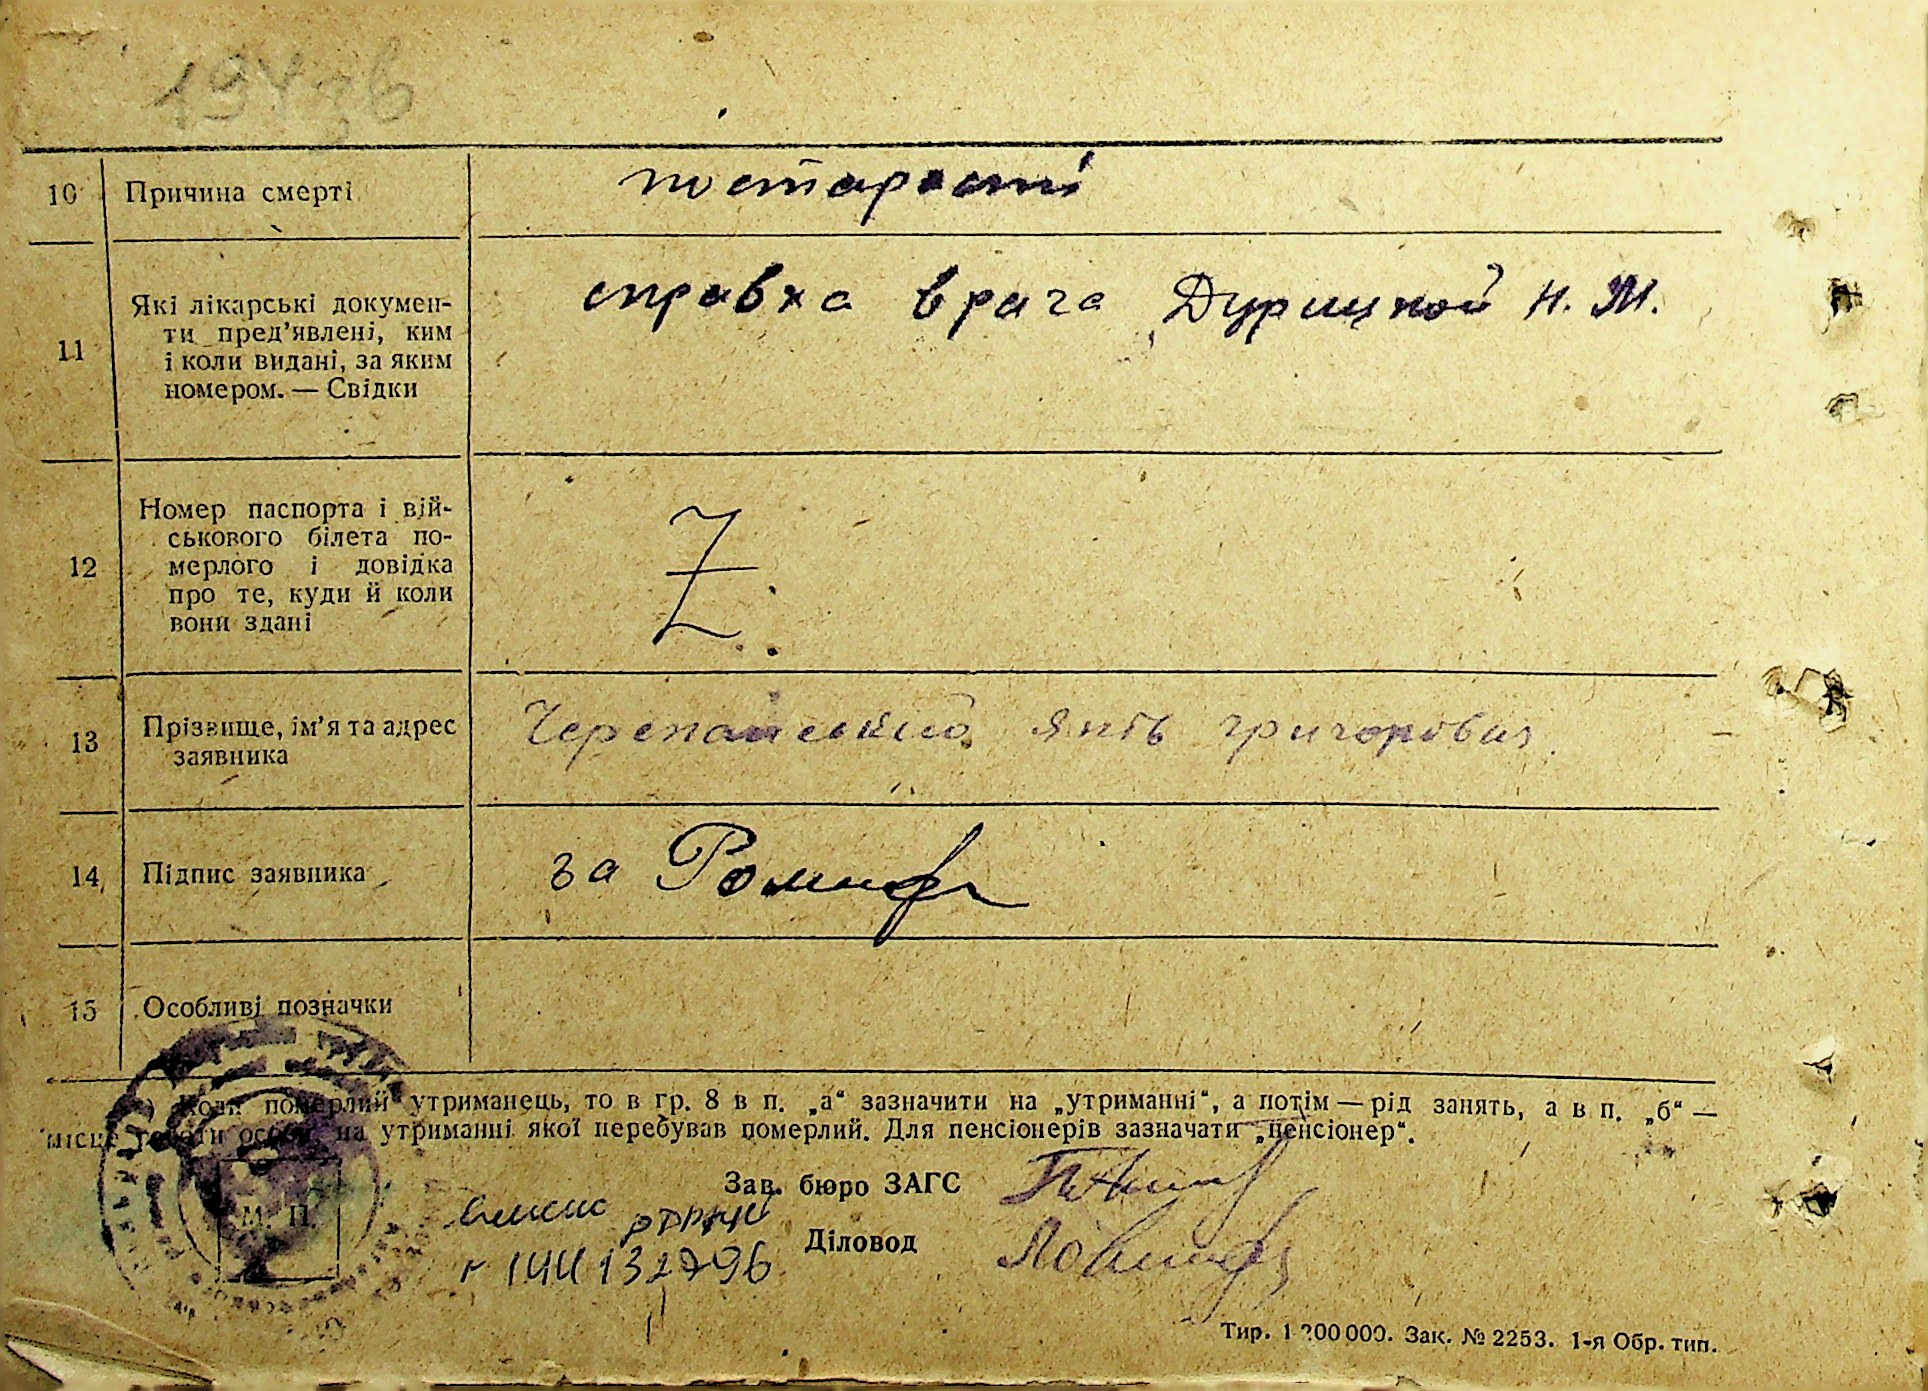 10 Причина смерті по старості
11 Які лікарські докумен-
ти пред'явлені, ким
і коли видані, за яким
номером. — Свідки
справка врача Дурицкой Н. М.
12 Номер паспорта і вій-
ськового білета по-
мерлого і довідка
про те, куди й коли
вони здані
Z
13 Прізвище, ім'я та адрес
заявника
Черепанський Яків Григорович
14 Підпис заявника за
15 Особливі позначки
Коли померлий утриманець, то в гр. 8 в п. „а“ зазначити на „утриманні“, а потім — рід занять, а в п. „б“ —
місце роботи особи, на утриманні якої перебував померлий. Для пенсіонерів зазначати „пенсіонер“.
Зав. бюро ЗАГС
М. П.
Діловод
132796
Тир. 1 200 000. Зак. № 2253. 1-я Обр. тип.